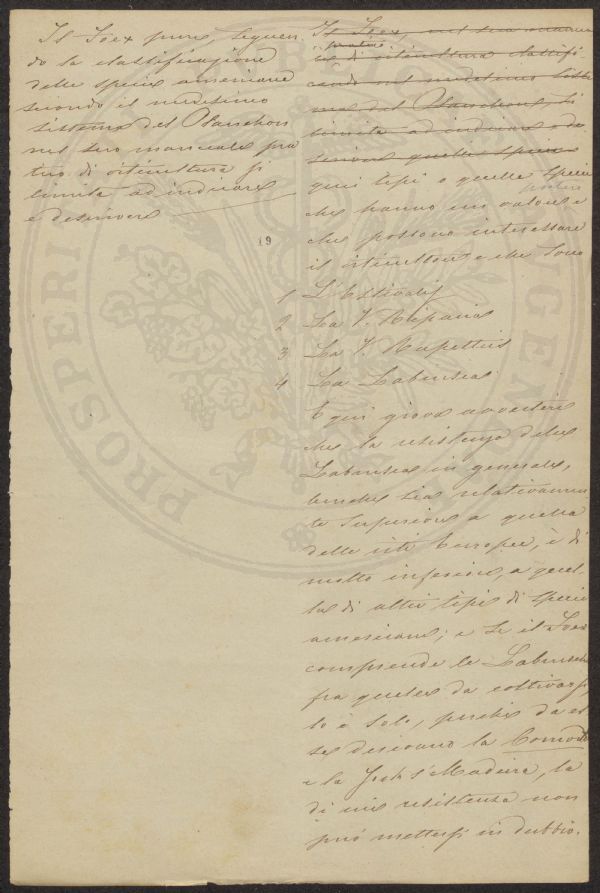 Il Föex pure, seguen
do la classificazione
delle specie americane
secondo il medesimo
sistema del Planchon
nel suo manuale pra
tico di viticultura si
limita ad indicare
e descrivere
Il Föex, nel suo manua
pratico
le di viticultura classifi
cando nel medesimo siste
ma del Planchon, si
limita ad indicare e de
scrivere quelle specie
quei tipi o quelle specie
pratico
che hanno un valore e
che possono interessare
il viticultore e che sono
19
1 L'Estivalis
2 La V. Riparia
3 La V. Rupestris
4 La Labrusca
E qui giova avvertire
che la resistenza delle
Labrusca in generale,
benchè sia relativamen
te superiore a quella
delle viti Europee, è di
molto inferiore, a quel
la di altri tipi di specie
americane; e se il Föex
comprende le Labrusche
fra quelle da coltivarsi,
lo è solo, perchè da es
se derivano la Concord
e la York's Madeira, la
di cui resistenza non
può mettersi in dubbio.
PROSPERI
BELO
INGEN